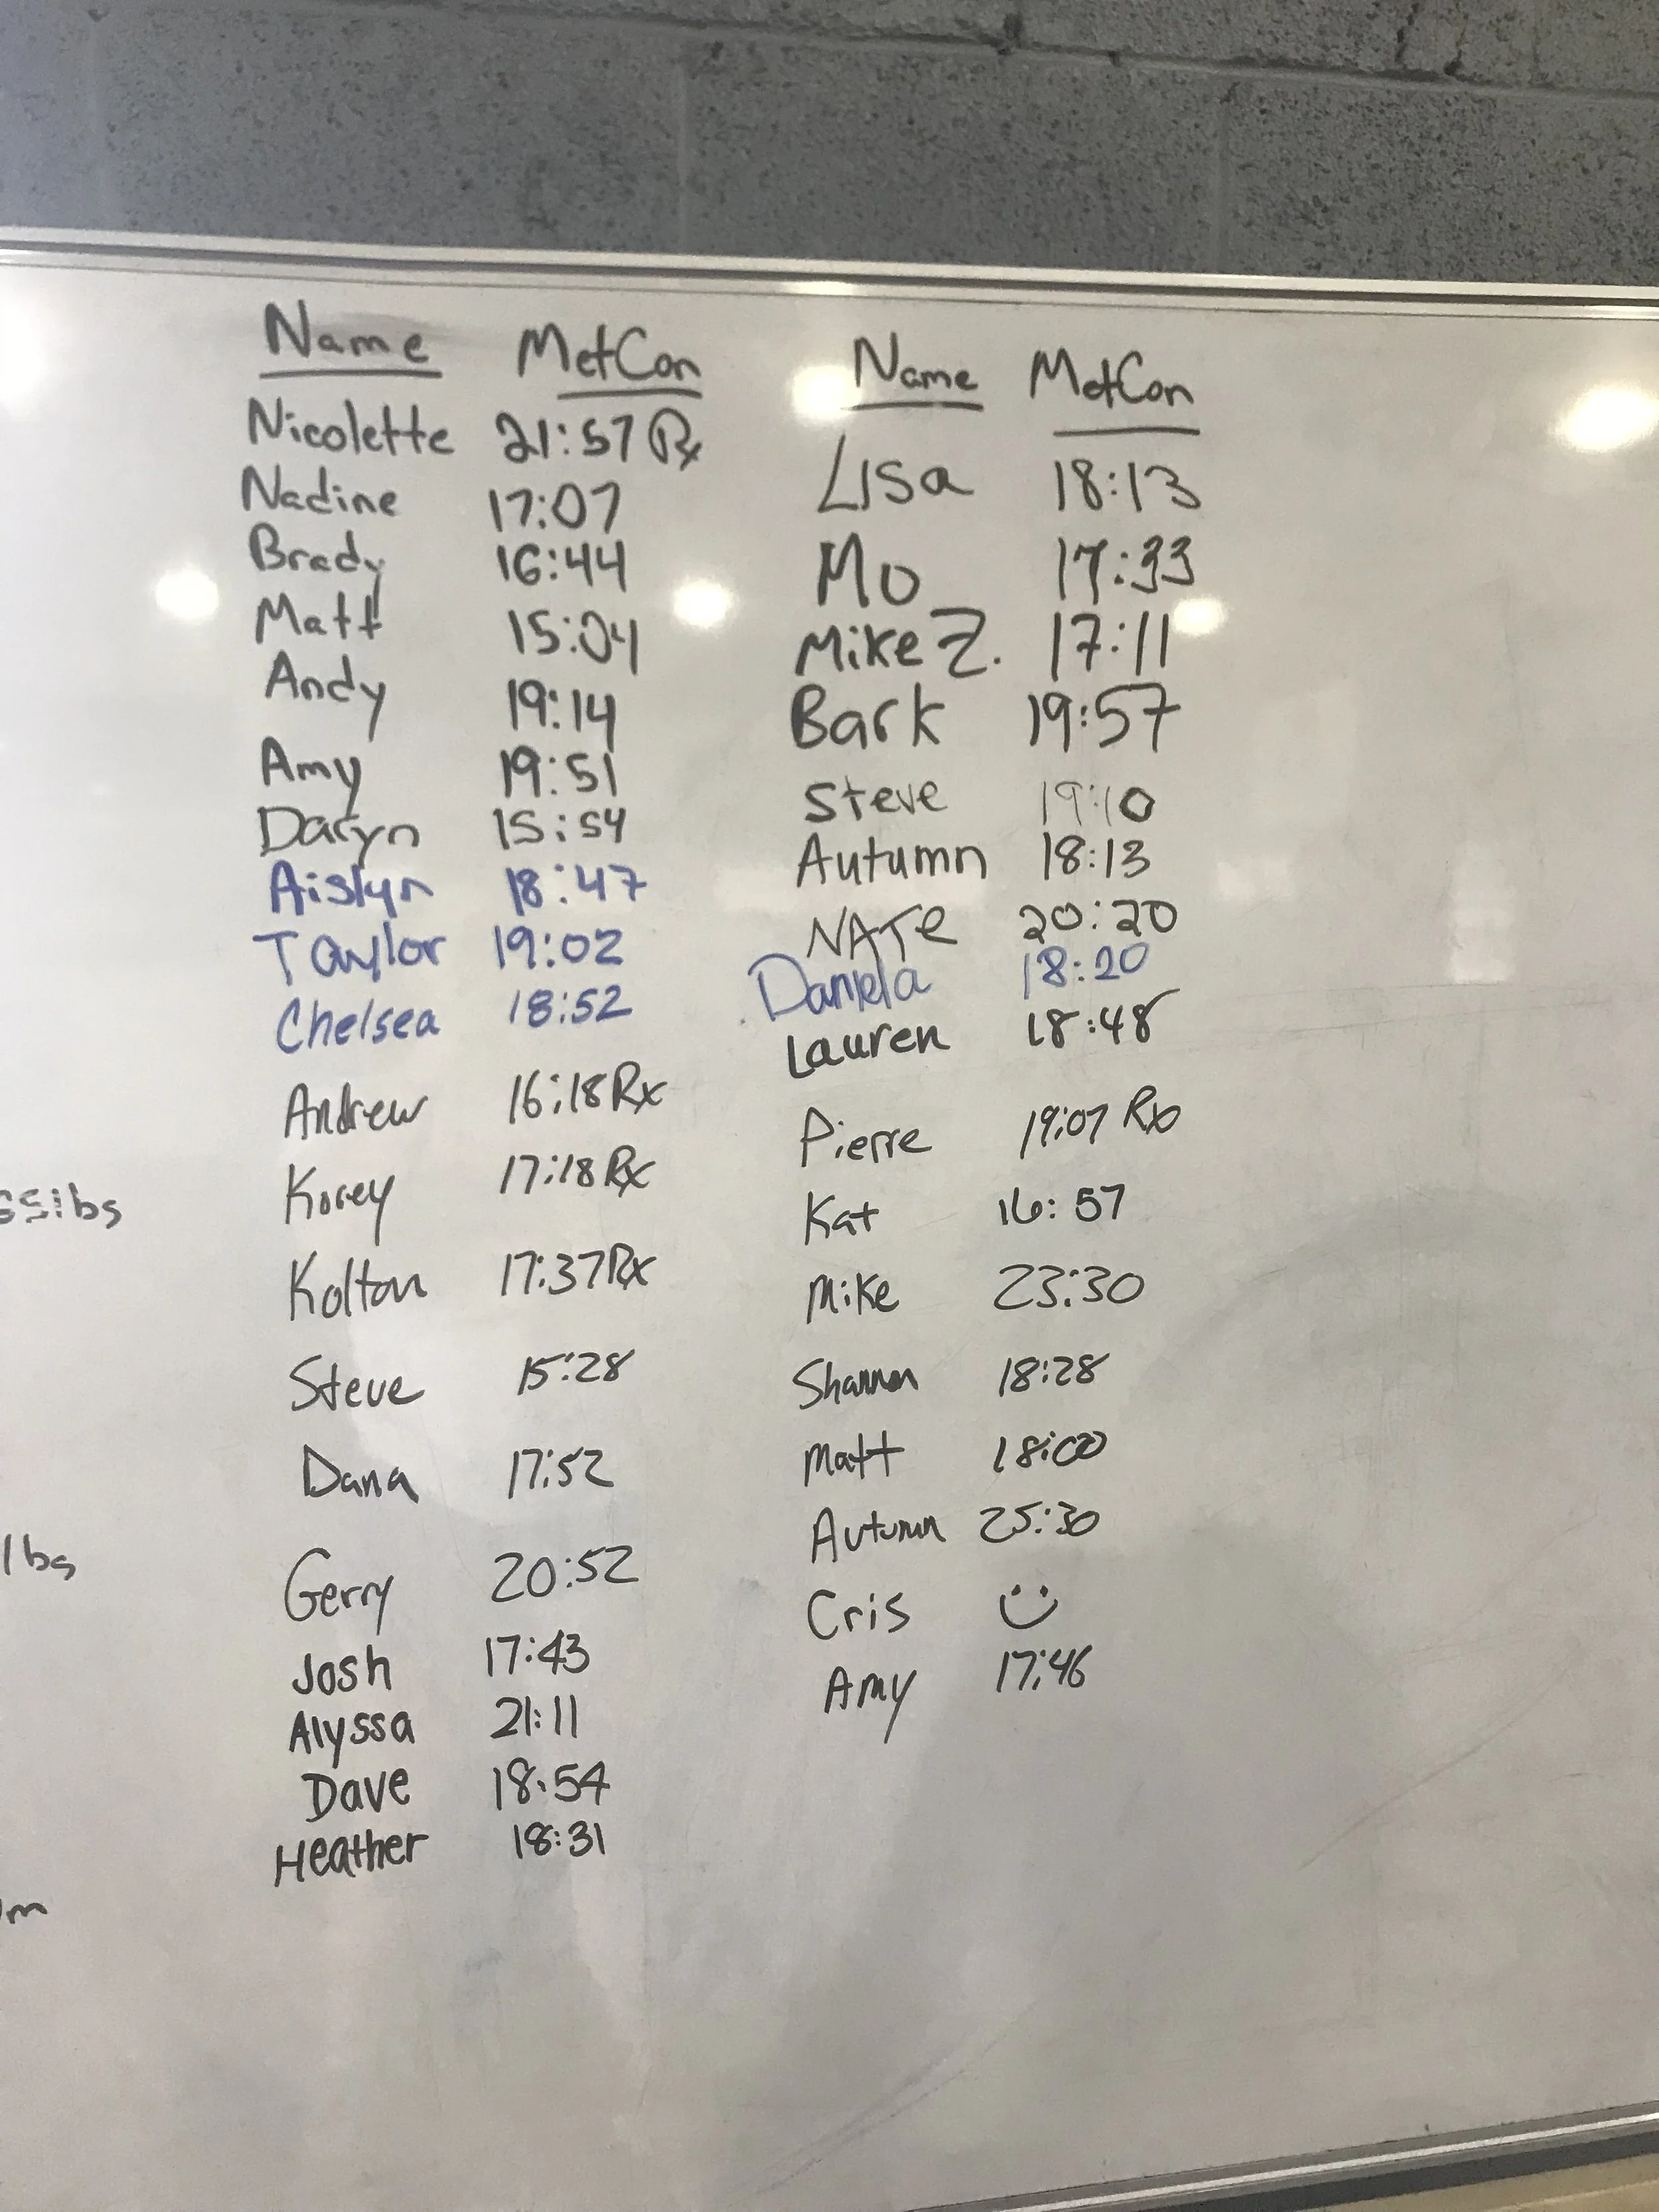 Name MetCon
Nicolette 21:57 Rx
Nadine 17:07
Brady 16:44
Matt 15:04
Andy 19:14
Amy 19:51
Daryn 15:54
Aislyn 18:47
Taylor 19:02
Chelsea 18:52
Andrew 16:18 Rx
Korey 17:18 Rx
Kolton 17:37 Rx
Steve 15:28
Dana 17:52
Gerry 20:52
Josh 17:43
Alyssa 21:11
Dave 18:54
Heather 18:31
Name MetCon
Lisa 18:13
Mo 17:33
Mike Z. 17:11
Bark 19:57
Steve 19:10
Autumn 18:13
NATe 20:20
Daniela 18:20
Lauren 18:48
Pierre 19:07 Rx
Kat 16:57
Mike 23:30
Shannon 18:28
Matt 18:00
Autumn 25:30
Cris
Amy 17:46
lbs